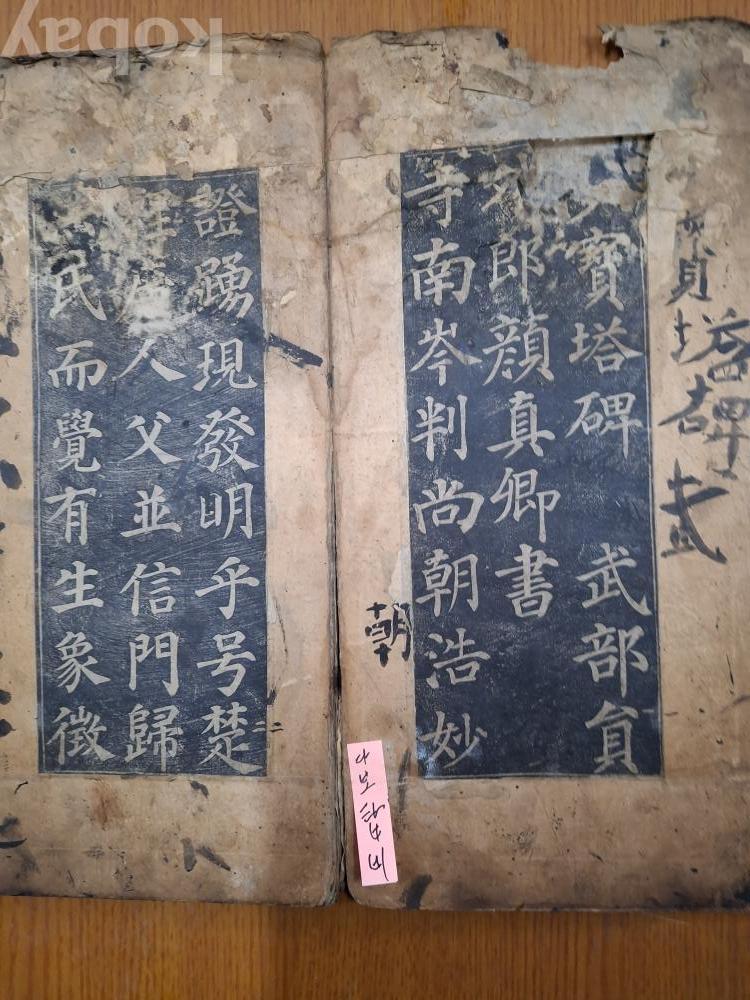 kobay
塔碑
寶塔碑 武部貟
郎顔真卿書
寺南岑判尚朝浩妙
朝
다보탑비
證踴現發明乎号楚
二
人父並信門歸
民而覺有生象徵